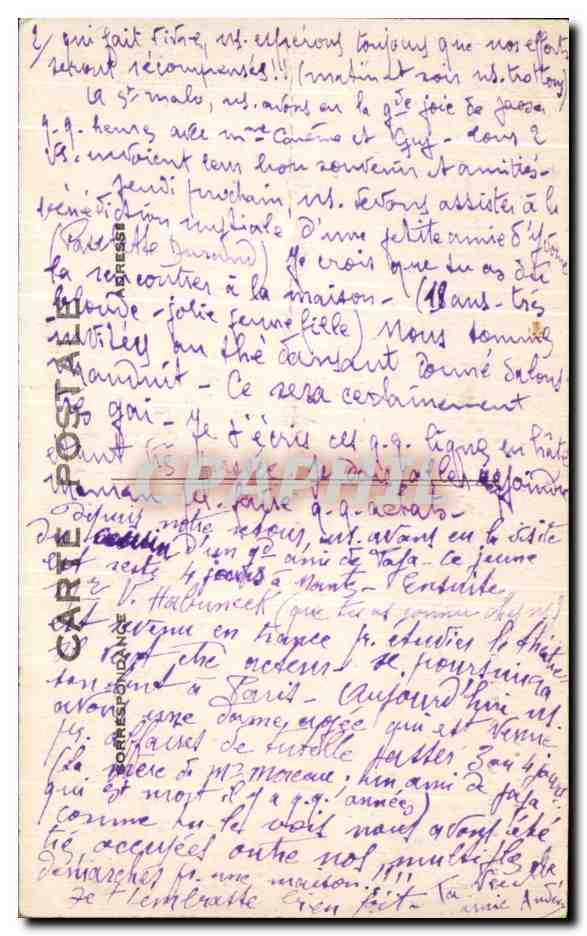 2/ qui fait vivre, ns. espérons toujours que nos efforts
seront récompensés !! (matin et soir ns. trottons)
A St. malo, ns. avons eu la gde joie de passer
q.q. heures avec mme Carême et Guy - tous 2
vs. envoient leur bon souvenir et amitiés -
Jeudi prochain, ns. devons assister à la
bénédiction nuptiale d'une petite amie d'Yvonne
Durand) Je crois que tu as dû
la rencontrer à la maison - (18 ans - très
blonde - jolie jeune fille) Nous sommes
invitées au thé dansant donné salons
Mauduit - Ce sera certainement
très gai - Je t'écris ces q.q. lignes en hâte
étant très
maman pr. faire q.q. achats -
depuis notre retour, ns. avons eu la visite
d'un gd ami de Jaja - ce jeune
est resté 4 jours à Nantes - Ensuite
V. Habuneck (que tu as connu chez ns)
est venu en France pr. étudier le théâtre
veut être acteur - se poursuivra
à Paris - Aujourd'hui ns.
avons une dame âgée qui est venue
pr. affaires de tutelle passer 3 ou 4 jours
(la mère de mr. Moreau, un ami de Jaja
qui est mort il y a q.q. années)
comme tu le vois nous avons été
très occupées outre nos multiples
démarches pr. une maison !!!!
Je t'embrasse bien fort - Ta
amie
CARTE POSTALE
CORRESPONDANCE
ADRESSE
CPAPHIL